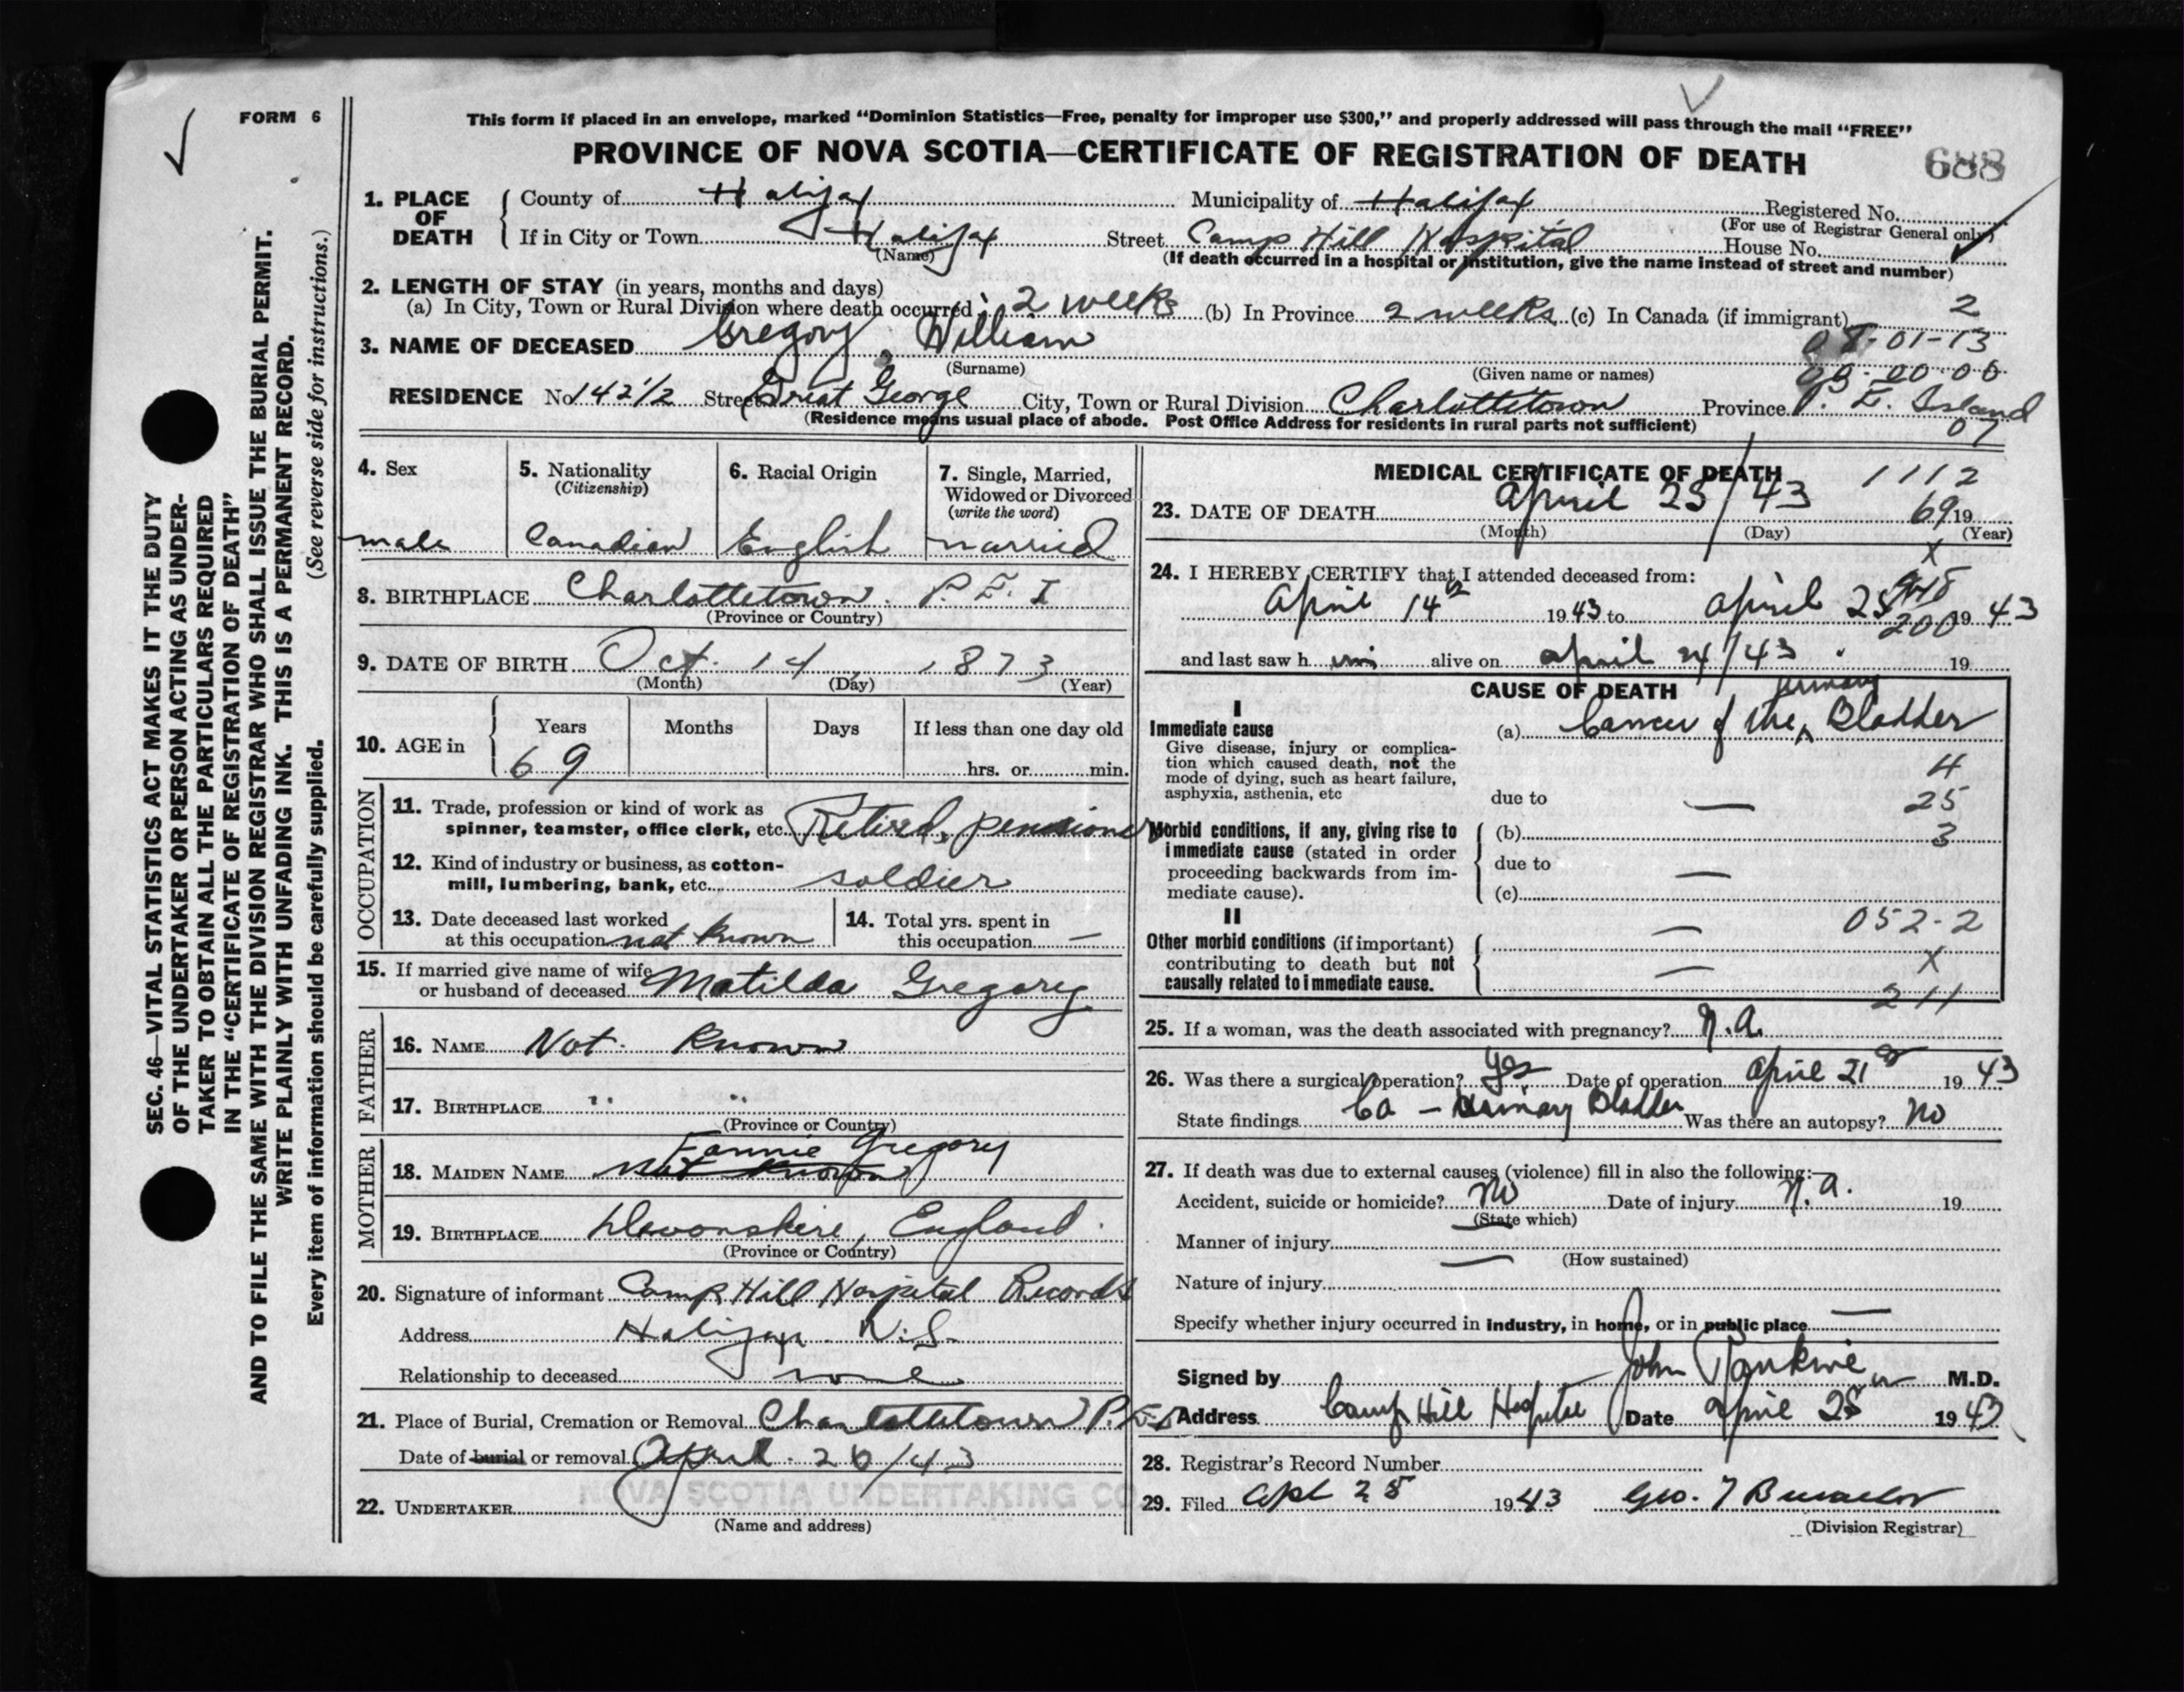 FORM 6
This form if placed in an envelope, marked “Dominion Statistics—Free, penalty for improper use $300,” and properly addressed will pass through the mail “FREE”
PROVINCE OF NOVA SCOTIA—CERTIFICATE OF REGISTRATION OF DEATH
688
SEC. 46—VITAL STATISTICS ACT MAKES IT THE DUTY
OF THE UNDERTAKER OR PERSON ACTING AS UNDER-
TAKER TO OBTAIN ALL THE PARTICULARS REQUIRED
IN THE “CERTIFICATE OF REGISTRATION OF DEATH”
AND TO FILE THE SAME WITH THE DIVISION REGISTRAR WHO SHALL ISSUE THE BURIAL PERMIT.
WRITE PLAINLY WITH UNFADING INK. THIS IS A PERMANENT RECORD.
Every item of information should be carefully supplied. (See reverse side for instructions.)
1. PLACE OF DEATH
County of Halifax Municipality of Halifax Registered No.
(For use of Registrar General only)
If in City or Town Halifax Street Camp Hill Hospital House No.
(Name) (If death occurred in a hospital or institution, give the name instead of street and number)
2. LENGTH OF STAY (in years, months and days)
(a) In City, Town or Rural Division where death occurred 2 weeks (b) In Province 2 weeks (c) In Canada (if immigrant) 2
3. NAME OF DECEASED Gregory, William 08-01-13
(Surname) (Given name or names) 00-00
RESIDENCE No 142 1/2 Street Great George City, Town or Rural Division Charlottetown Province P. E. Island
(Residence means usual place of abode. Post Office Address for residents in rural parts not sufficient) 07
4. Sex
male
5. Nationality
(Citizenship)
Canadian
6. Racial Origin
English
7. Single, Married,
Widowed or Divorced
(write the word)
married
8. BIRTHPLACE Charlottetown. P.E.I
(Province or Country)
9. DATE OF BIRTH Oct. 14, 1873
(Month) (Day) (Year)
10. AGE in
Years Months Days If less than one day old
69 hrs. or min.
OCCUPATION
11. Trade, profession or kind of work as
spinner, teamster, office clerk, etc. Retired, pensioner
12. Kind of industry or business, as cotton-
mill, lumbering, bank, etc. soldier
13. Date deceased last worked
at this occupation not known
14. Total yrs. spent in
this occupation —
15. If married give name of wife
or husband of deceased Matilda Gregory
FATHER
16. NAME Not Known
17. BIRTHPLACE " "
(Province or Country)
MOTHER
Fannie Gregory
18. MAIDEN NAME Not Known
19. BIRTHPLACE Devonshire, England.
(Province or Country)
20. Signature of informant Camp Hill Hospital Records
Address Halifax N.S.
Relationship to deceased none
21. Place of Burial, Cremation or Removal Charlottetown P.E.I
Date of burial or removal April 26/43
NOVA SCOTIA UNDERTAKING CO
22. UNDERTAKER
(Name and address)
MEDICAL CERTIFICATE OF DEATH 1112
23. DATE OF DEATH April 25/43 69 19
(Month) (Day) (Year)
X
24. I HEREBY CERTIFY that I attended deceased from:
April 14 1943 to April 25 1943
200
and last saw h im alive on April 24/43 19
CAUSE OF DEATH
I
Immediate cause
Give disease, injury or complica-
tion which caused death, not the
mode of dying, such as heart failure,
asphyxia, asthenia, etc
urinary
(a) Cancer of the Bladder
4
due to — 25
Morbid conditions, if any, giving rise to
immediate cause (stated in order
proceeding backwards from im-
mediate cause).
(b) 3
due to —
(c)
II
Other morbid conditions (if important)
contributing to death but not
causally related to immediate cause.
— 052-2
— X
211
25. If a woman, was the death associated with pregnancy? N.A.
26. Was there a surgical operation? Yes Date of operation April 21 1943
State findings Ca — Urinary Bladder Was there an autopsy? No
27. If death was due to external causes (violence) fill in also the following:—
Accident, suicide or homicide? No Date of injury N.A. 19
(State which)
Manner of injury
— (How sustained)
Nature of injury
Specify whether injury occurred in industry, in home, or in public place —
Signed by John M.D.
Address Camp Hill Hospital Date April 25 1943
28. Registrar's Record Number
29. Filed Apl 28 1943 Geo.
(Division Registrar)